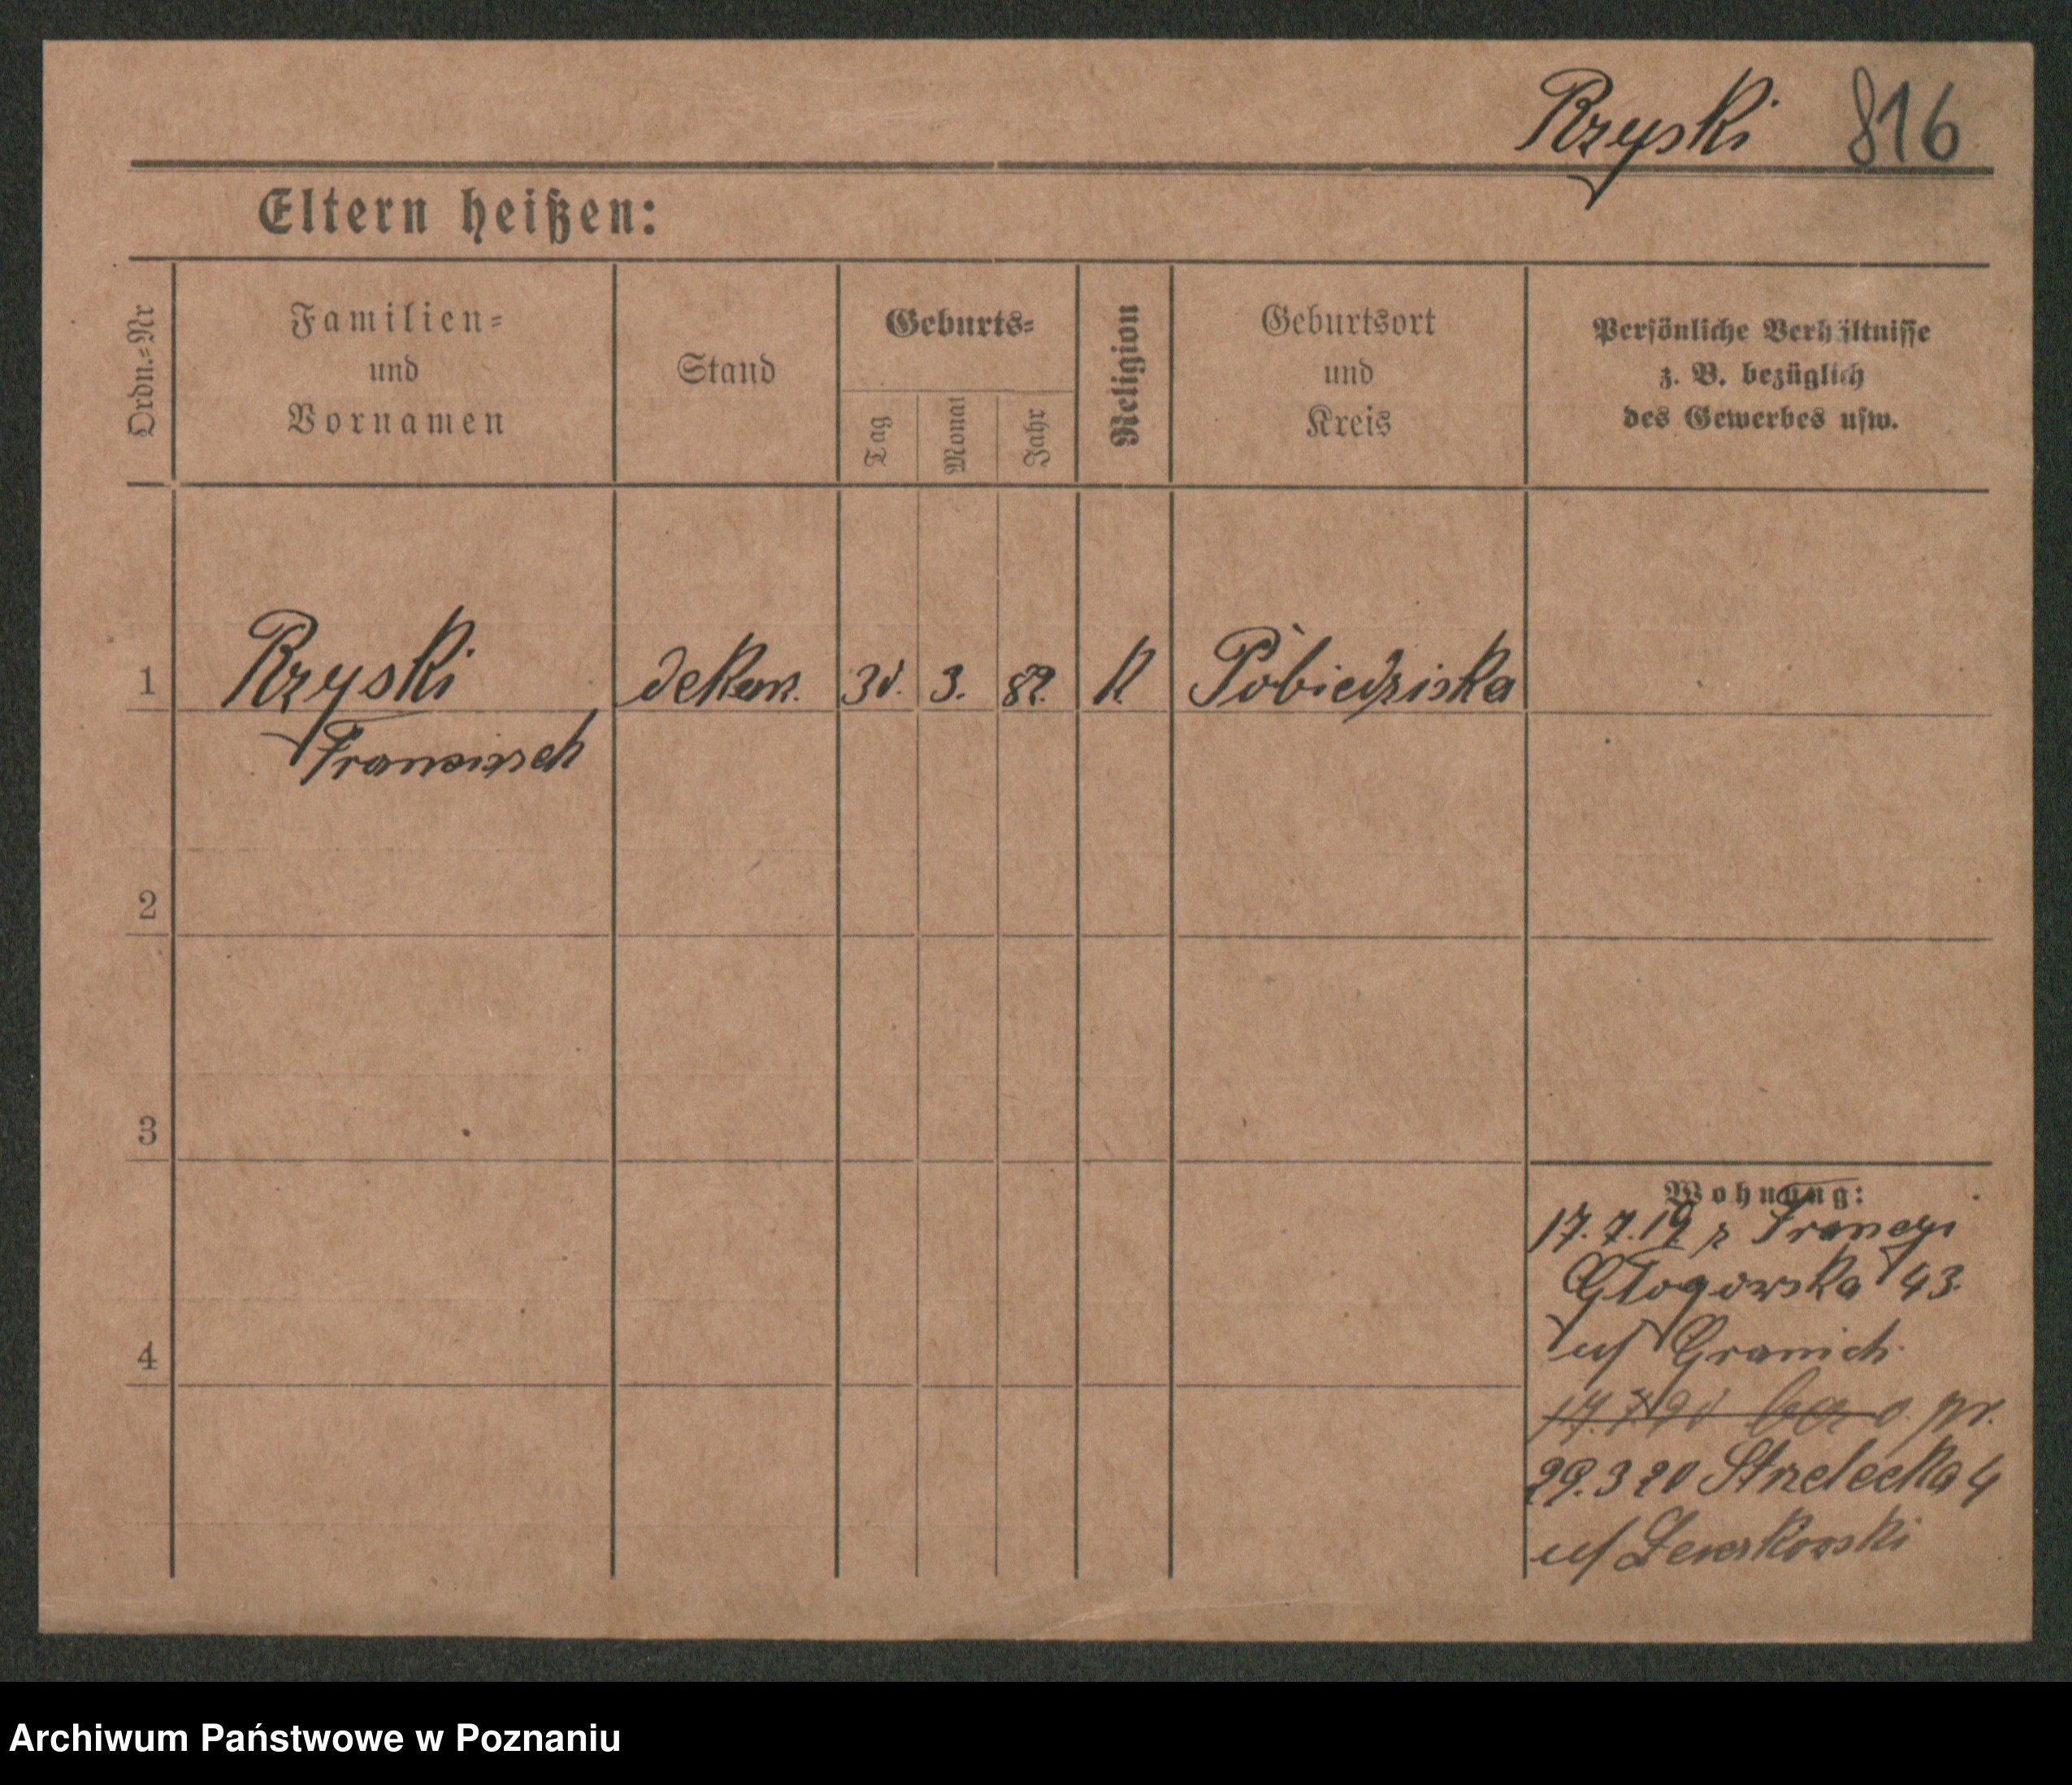 Rzyski 816
Eltern heißen:
Ordn.=Nr
Familien=
und
Vornamen
Stand
Geburts=
Tag
Monat
Jahr
Religion
Geburtsort
und
Kreis
Persönliche Verhältnisse
z. B. bezüglich
des Gewerbes usw.
1 Rzyski dekor. 30. 3. 82. K. Pobiedziska
2
3
4
Wohnung:
17.7.19 z
Głogowska 43.
o. pr.
29.3 20 Strzelecka 4
Archiwum Państwowe w Poznaniu